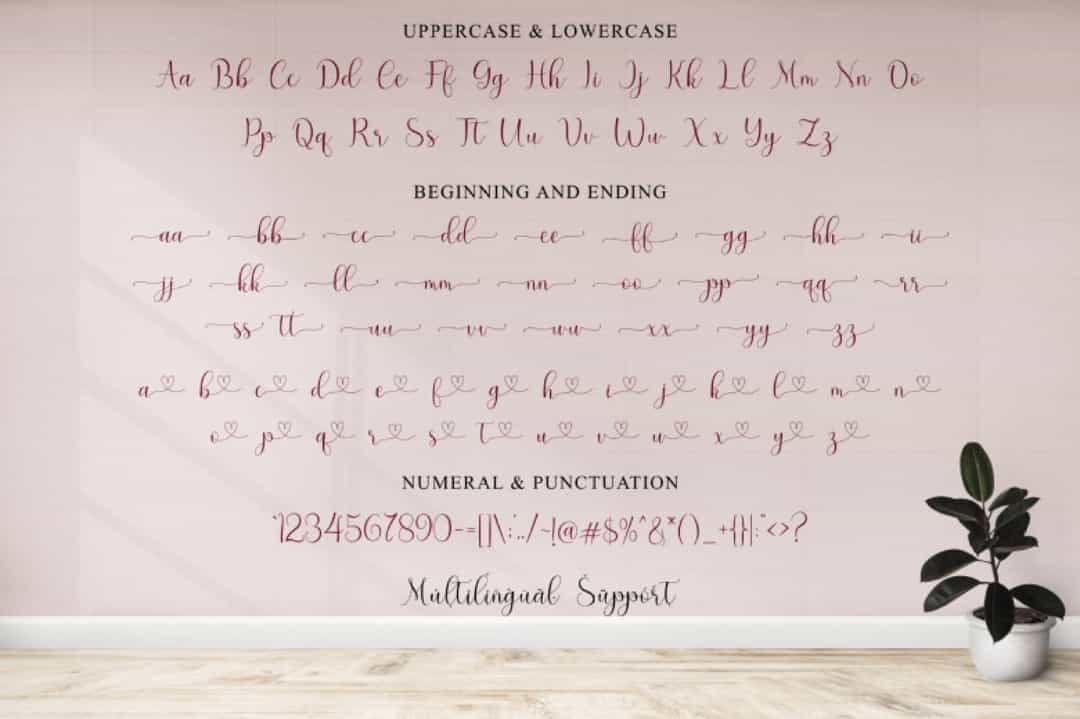 UPPERCASE & LOWERCASE
Aa Bb Cc Dd Ee Ff Gg Hh Ii Jj Kk Ll Mm Nn Oo
Pp Qq Rr Ss Tt Uu Vv Ww Xx Yy Zz
BEGINNING AND ENDING
aa bb cc dd ee ff gg hh ii
jj kk ll mm nn oo pp qq rr
ss tt uu vv ww xx yy zz
a♡ b♡ c♡ d♡ e♡ f♡ g♡ h♡ i♡ j♡ k♡ l♡ m♡ n♡
o♡ p♡ q♡ r♡ s♡ t♡ u♡ v♡ w♡ x♡ y♡ z♡
NUMERAL & PUNCTUATION
1234567890-=[]\;'../~!@#$%^&*()_+{}|:"<>?
Múltilingüàl Śüppórt